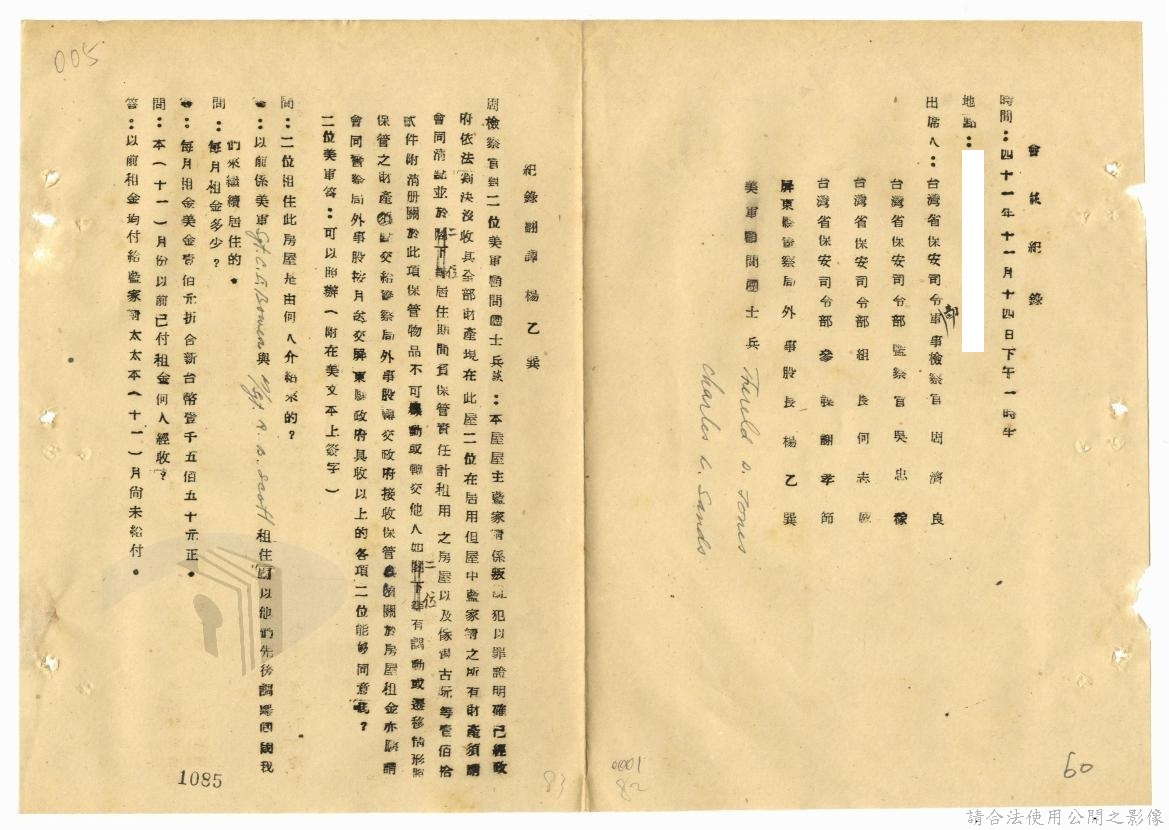 005
60
會談紀錄
時間:四十一年十一月十四日下午一時半
地點:
出席人:台灣省保安司令部軍事檢察官 周濟良
台灣省保安司令部監察官 吳忠
台灣省保安司令部組長何志
台灣省保安司令部參謀謝孝節
屏東縣警察局外事股長楊乙巽
美軍顧問團士兵 Therold D. Jones
Charles C. Sands
0001
82
83
紀錄翻譯 楊乙巽
周檢察官對二位美軍顧問團士兵談:本屋屋主藍家 係叛 犯以罪證明確已經政
府依法判決沒收其全部財產現在此屋二位在居用但屋中藍家 之所有財產須請
會同清 並於二位 居住期間負保管責任計租用之房屋以及傢俱古玩等壹佰拾
貳件附清册關於此項保管物品不可 動或轉交他人如二位 有調動或遷移情形
保管之財產須點交給警察局外事股轉交政府接收保管 關於房屋租金亦 請
會同警察局外事股按月送交屏東縣政府具收以上的各項二位能够同意嗎?
二位美軍答:可以照辦(附在美文本上簽字)
問:二位租住此房屋是由何人介紹來的?
答:以前係美軍Sgt. C. E. Bowen與M/Sgt. R. B. Scott租住 以他們先後調 回國我
們來繼續居住的。
問:每月租金多少?
答:每月租金美金壹佰元折合新台幣壹千五佰五十元正。
問:本(十一)月份以前已付租金何人經收?
答:以前租金均付給藍家 太太本(十一)月尚未給付。
1085
請合法使用公開之影像